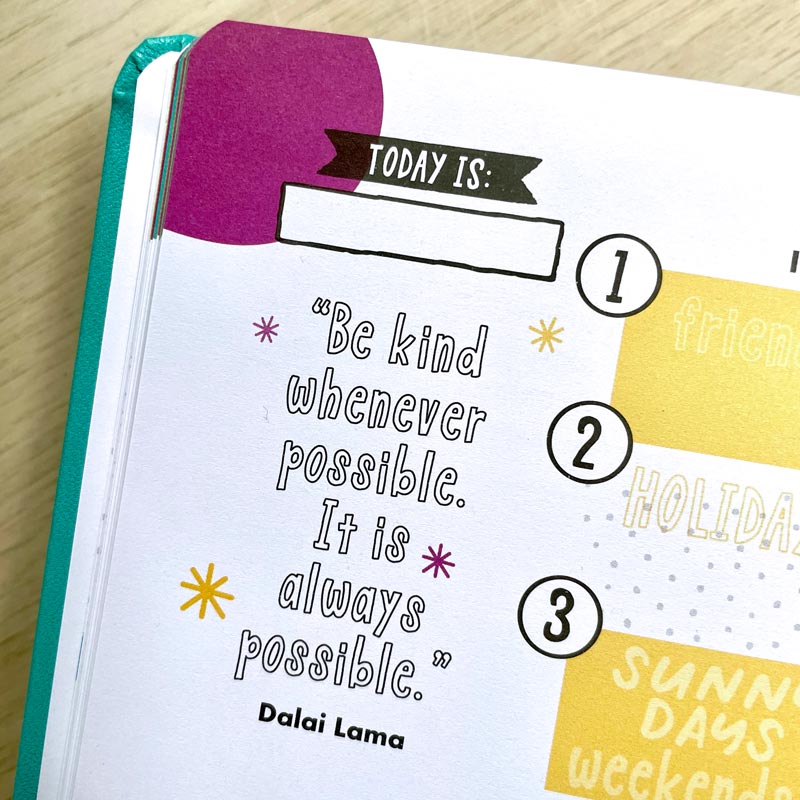 TODAY IS:
“Be kind
whenever
possible.
It is
always
possible.”
Dalai Lama
1
2
HOLIDA
3
SUNNY
DAYS
weekends